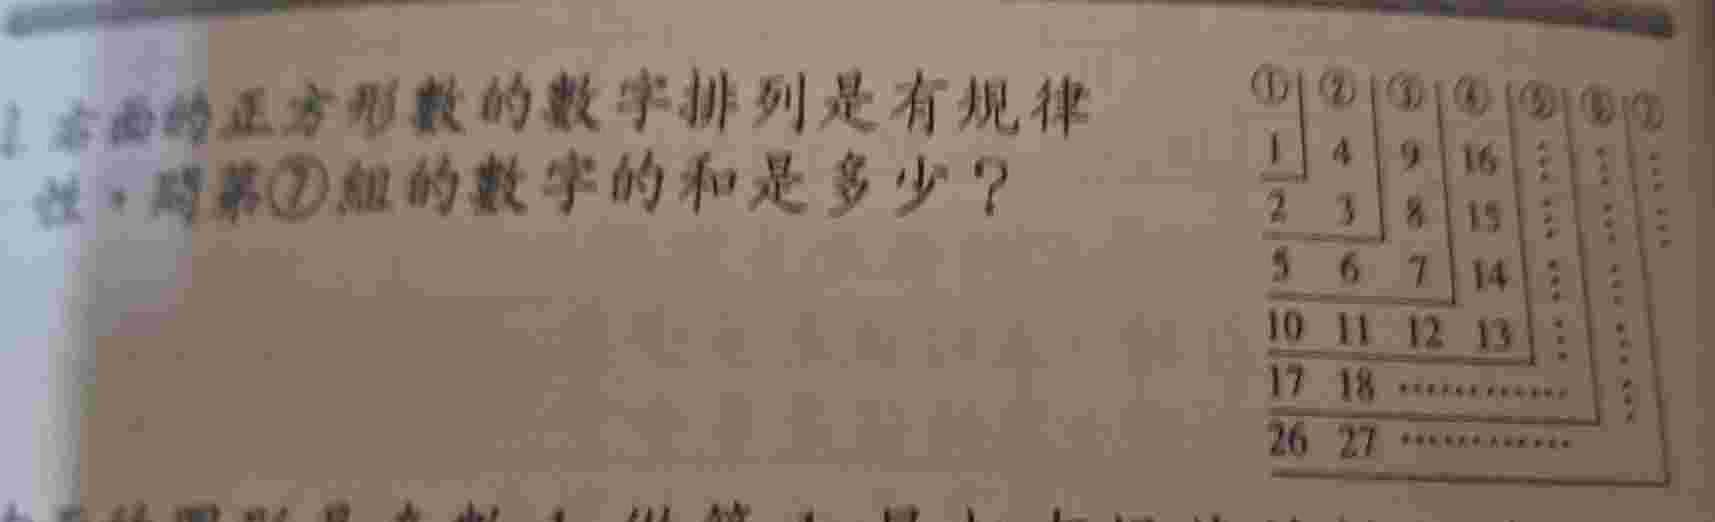 1. 右面的正方形數的數字排列是有規律
性，問第⑦組的數字的和是多少？
① ② ③ ④ ⑤ ⑥ ⑦
1 4 9 16
2 3 8 15
5 6 7 14
10 11 12 13
17 18 …………
26 27 …………